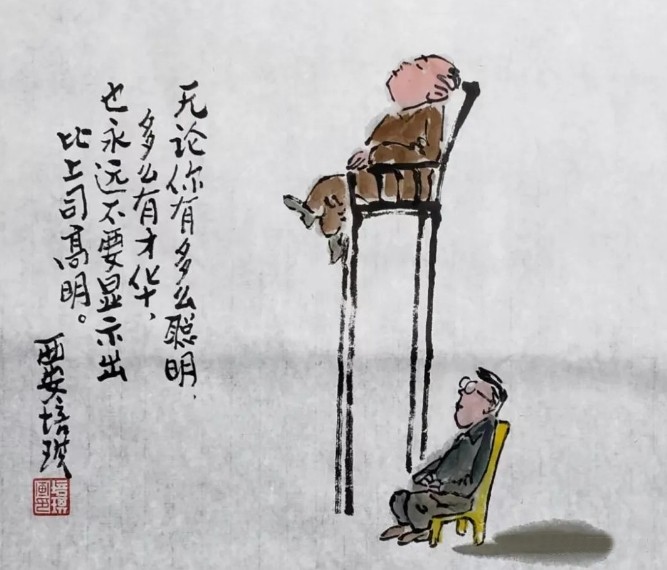 无论你有多么聪明,
多么有才华,
也永远不要显示出
比上司高明。
西安培琪